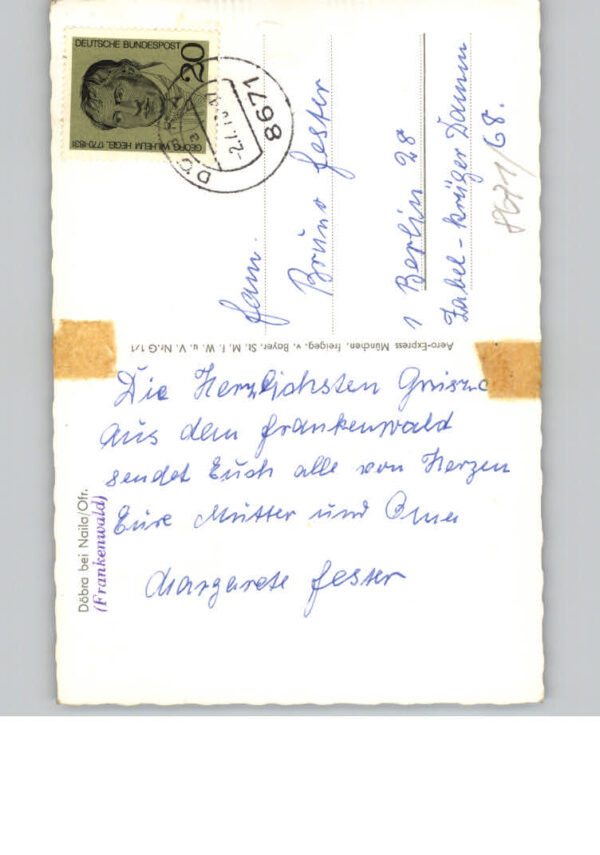 DEUTSCHE BUNDESPOST
20
GEORG WILHELM HEGEL 1770-1831
8671
Fam.
Bruno Fester
1 Berlin 28
Zabel-Krüger Damm
68.
8671/
Aero-Express München, freigeg. v. Bayer. St. M. f. W. u. V. Nr. G 1/1
Die Herzlichsten Grüsse
aus dem Frankenwald
sendet Euch alle von Herzen
Eure Mutter und Oma
Margarete Fester
Döbra bei Naila/Ofr.
(Frankenwald)